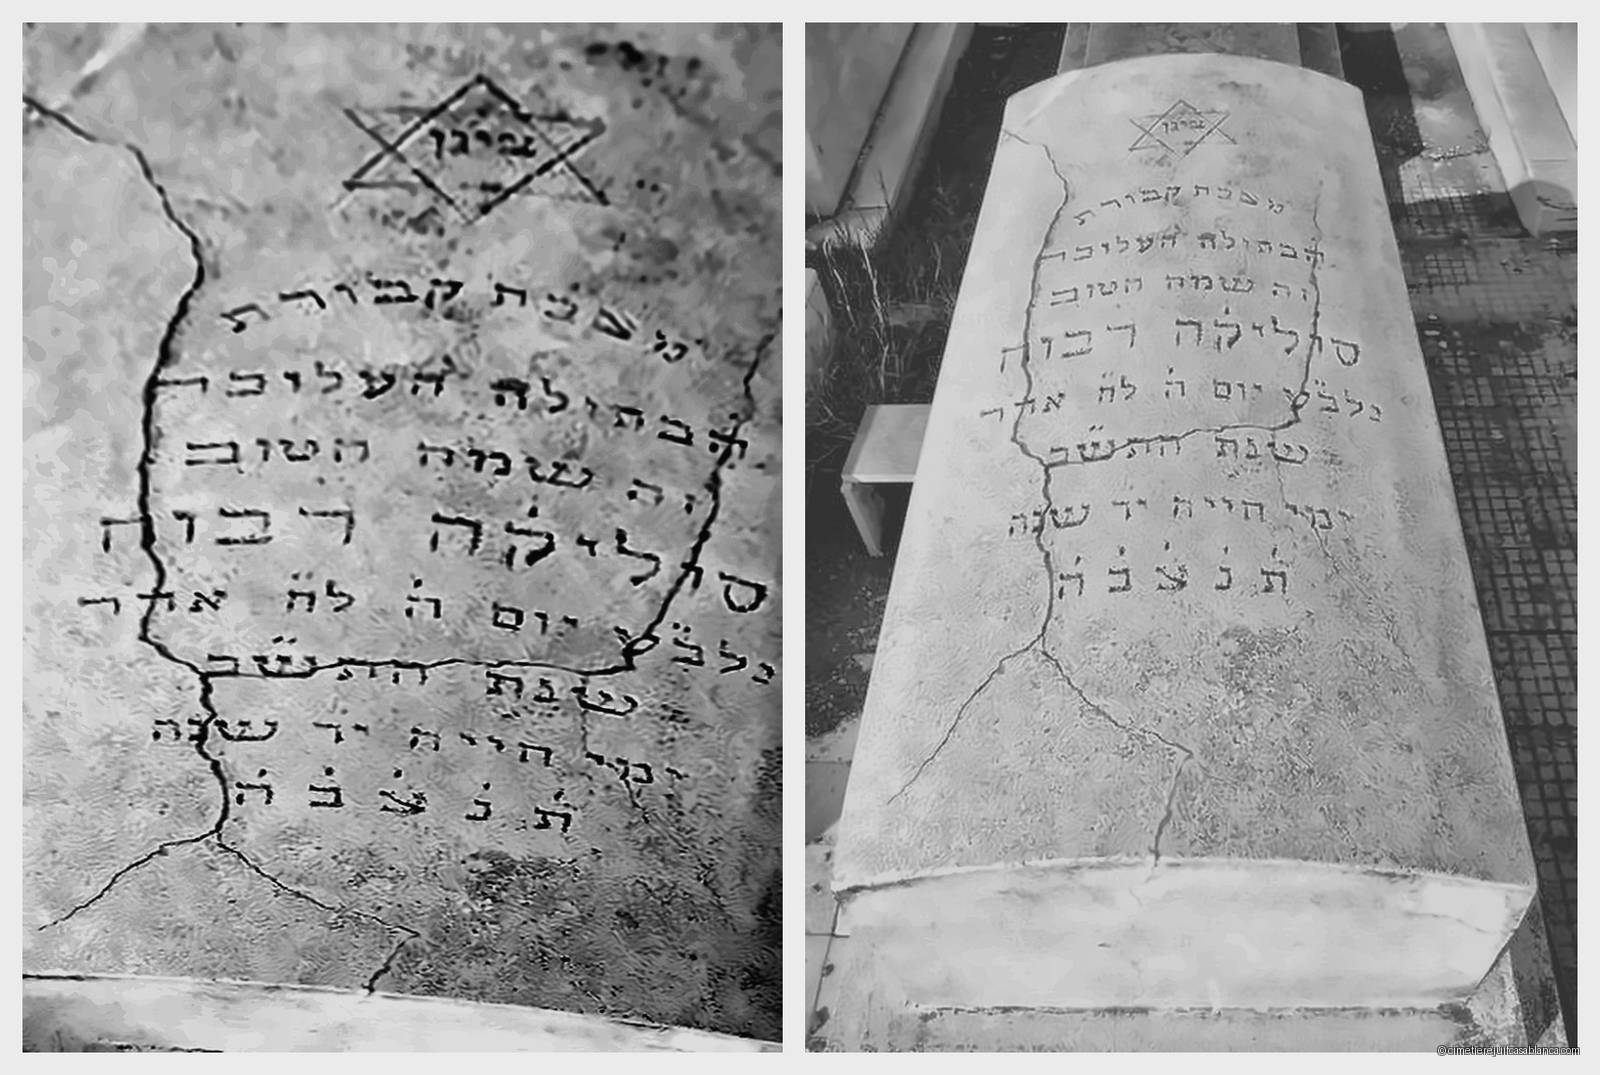 מצבת קבורת
הבתולה העלובה
זה שמה הטוב
סוליקה דבוה
נלב״ע יום ה׳ לח״ אדר
שנת התש״ב
ימי חייה יד שנה
ת׳ נ׳ צ׳ ב׳ ה׳
מצבת קבורת
הבתולה העלובה
זה שמה הטוב
סוליקה דבוה
נלב״ע יום ה׳ לח״ אדר
שנת התש״ב
ימי חייה יד שנה
ת׳ נ׳ צ׳ ב׳ ה׳
©cimetierejuifcasablanca.com